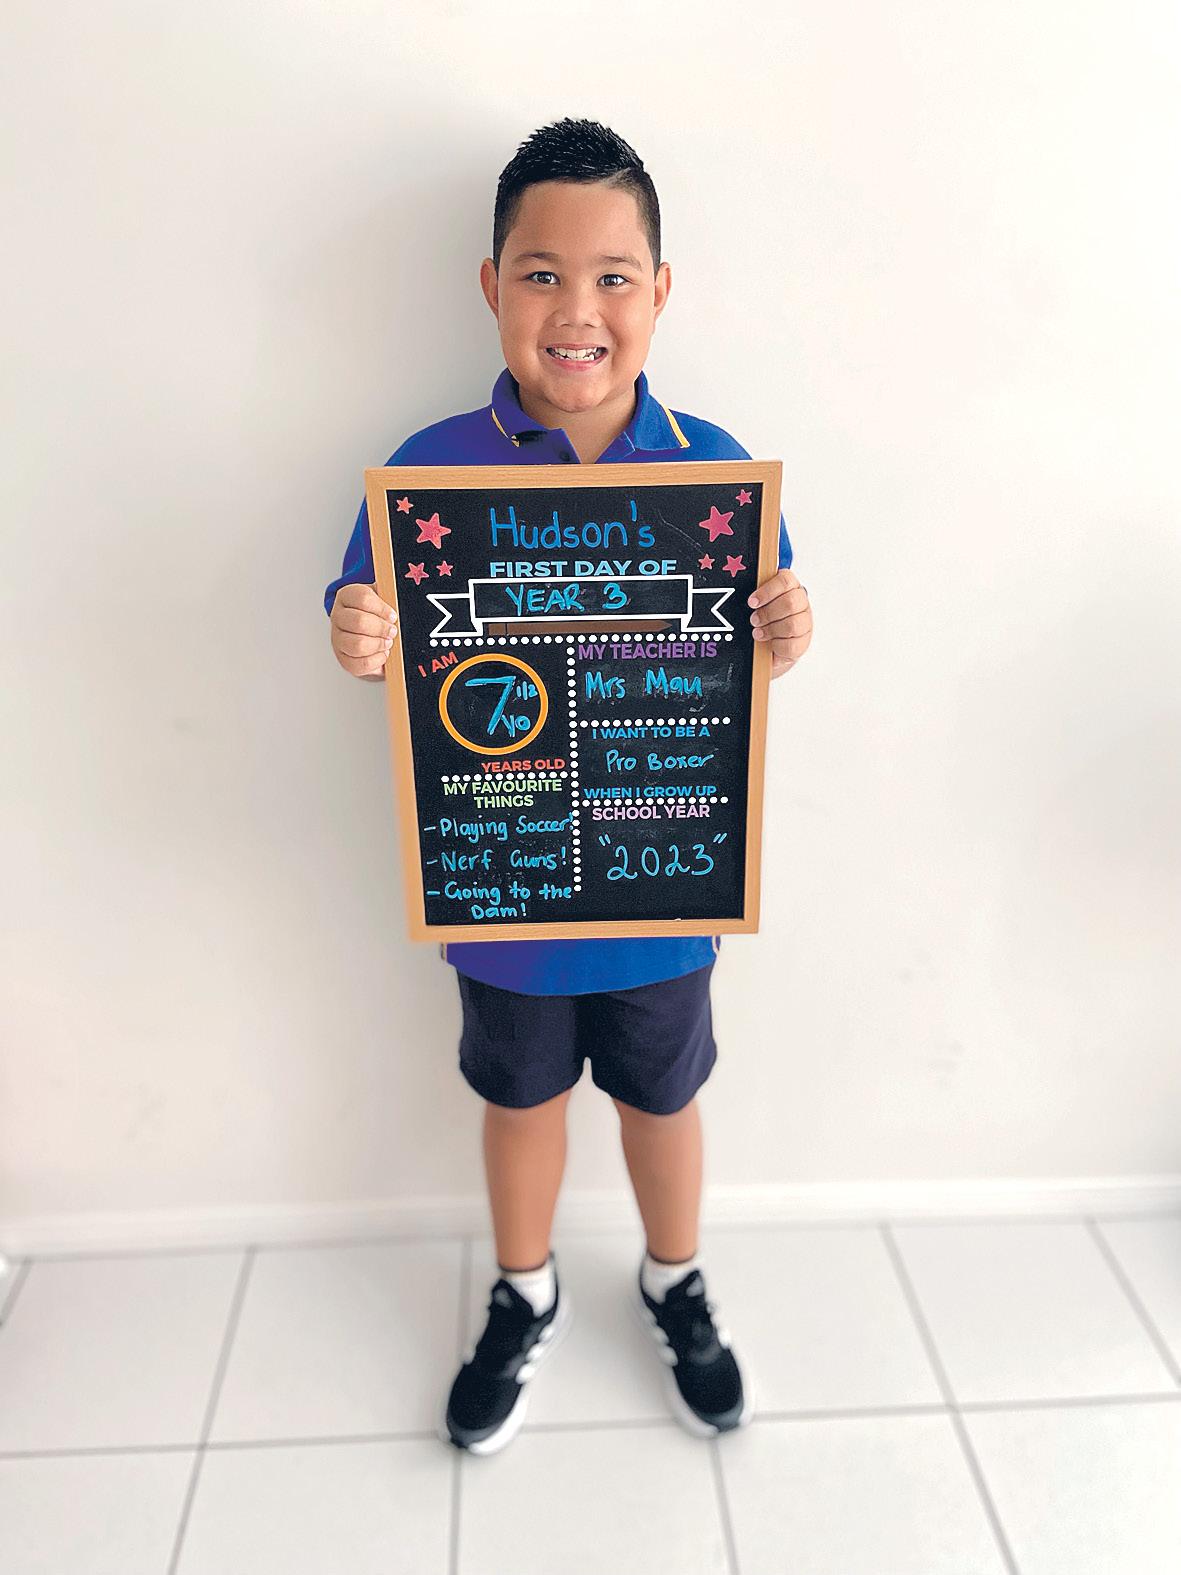 Hudson's
FIRST DAY OF
YEAR 3
I AM
7 1/2
YO
YEARS OLD
MY FAVOURITE
THINGS
- Playing Soccer!
- Nerf Guns!
- Going to the
Dam!
MY TEACHER IS
Mrs Mau
I WANT TO BE A
Pro Boxer
WHEN I GROW UP
SCHOOL YEAR
"2023"